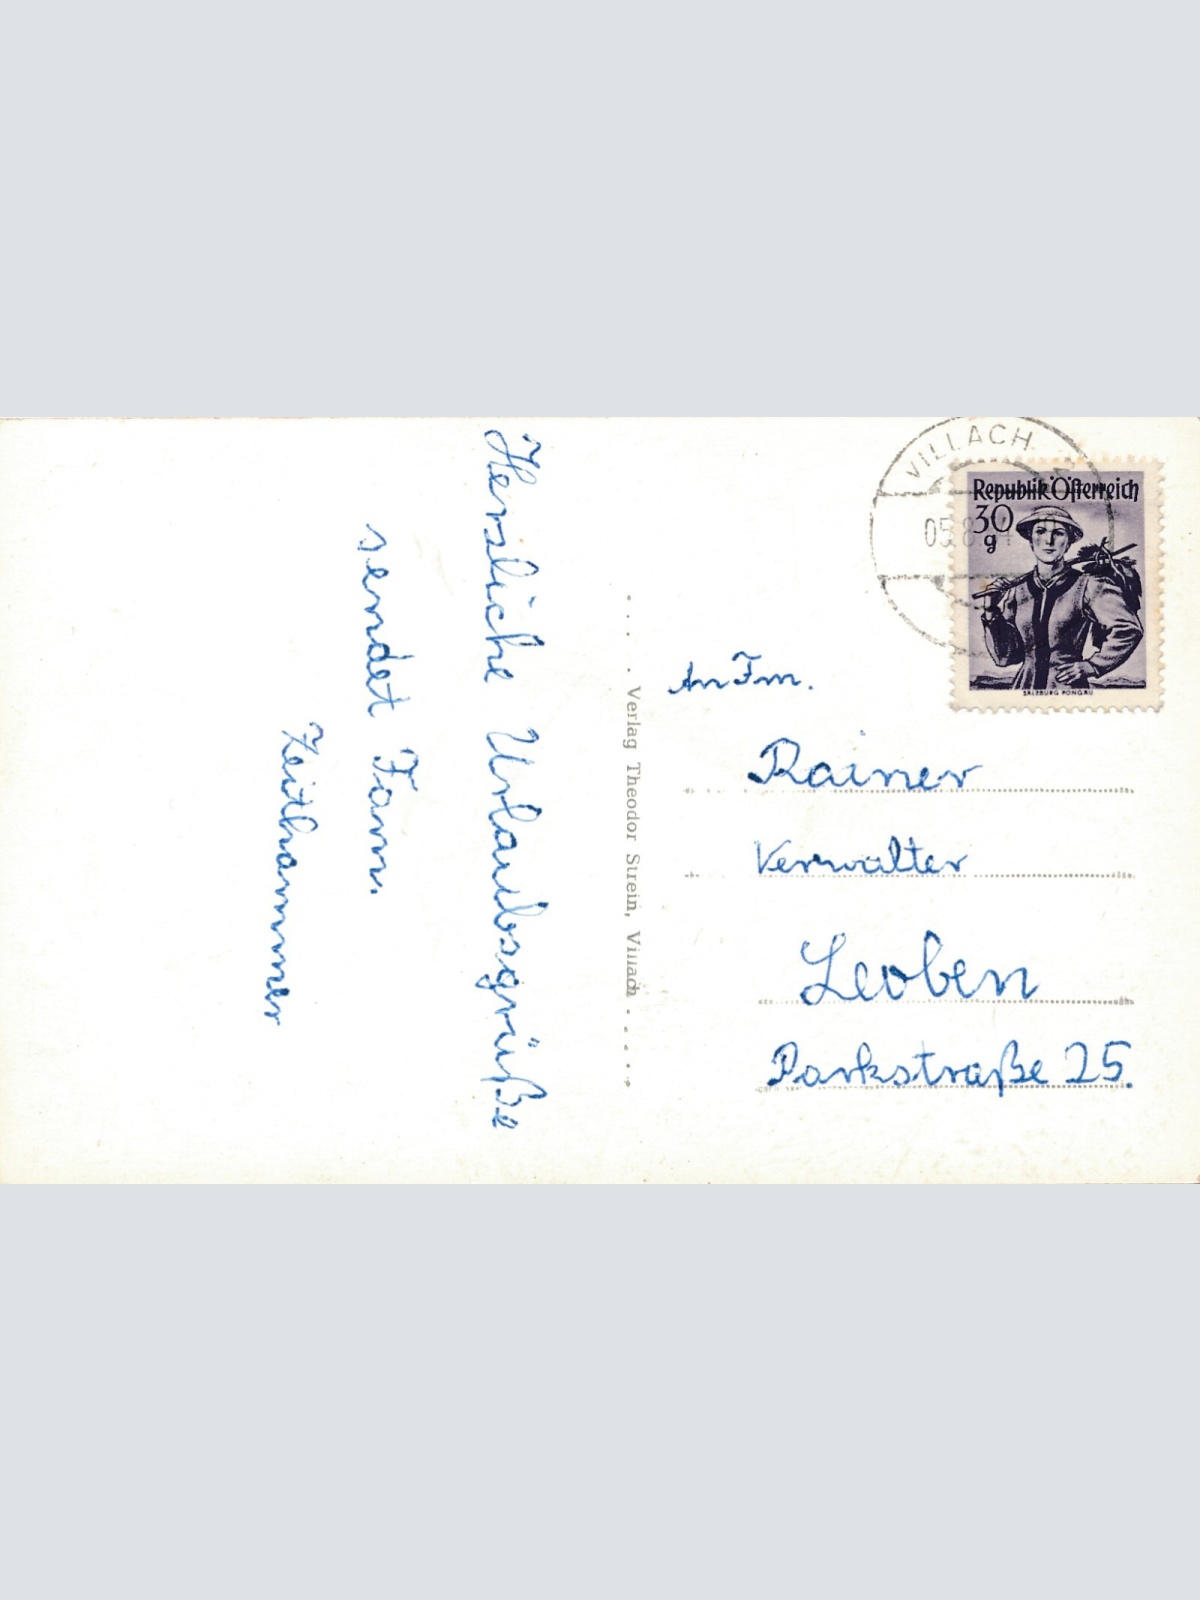 Herzliche Urlaubsgrüße
sendet Fam.
Zeithammer
Verlag Theodor Strein, Villach
VILLACH
Republik Österreich
30
g
SALZBURG PONGAU
An Fm.
Rainer
Verwalter
Leoben
Parkstraße 25.